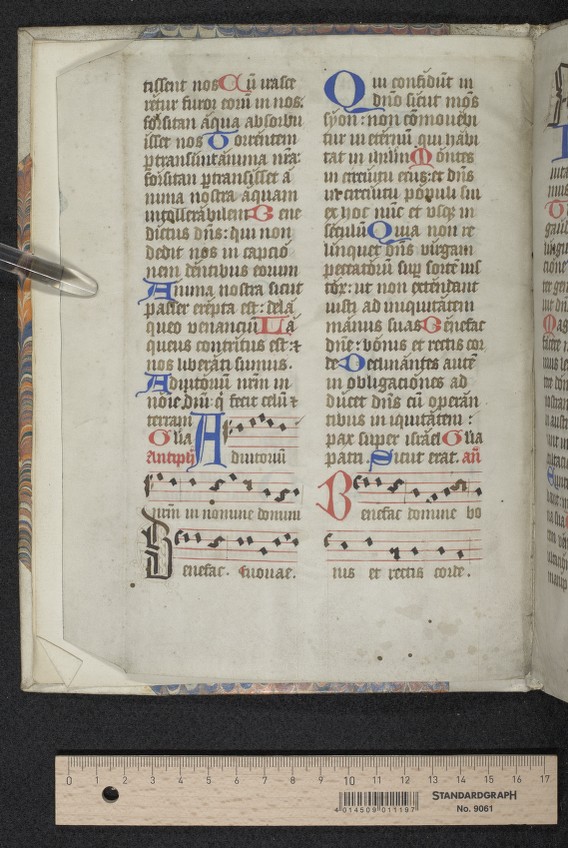 tissent nos Cū irasce
retur furor eorū in nos:
forsitan aqua absorbu
isset nos Torrentem
ptransiuit anima nra:
forsitan ptransisset a
nima nostra aquam
intollerabilem Bene
dictus dns: qui non
dedit nos in captio
nem dentibus eorum
Anima nostra sicut
passer erepta est: de la
queo venanciū La
queus contritus est: &
nos liberati sumus.
Adiutoriū nrm in
noīe dni: q fecit celū &
terram
Glīa
Antiphͣ Adiutoriū
nrm in nomine domini
Benefac. Euouae.
Qui confidūt in
dno sicut mōs
syon: non cōmouebi
tur in eternū qui habi
tat in ihrlm Montes
in circuitu eius: et dns
in circuitu populi sui
ex hoc nūc et vsqz in
seculū Quia non re
linquet dns virgam
peccatoriū sup sortē ius
torum: ut non extendant
iusti ad iniquitatem
manus suas Benefac
dne: bonis et rectis cor
de Declinantes autē
in obligaciones ad
ducet dns cū operan
tibus in iquitatem:
pax super israel Glīa
patri. Sicut erat. añ
Benefac domine bo
nis et rectis corde.
0 1 2 3 4 5 6 7 8 9 10 11 12 13 14 15 16 17
4 014509 011197
STANDARDGRAPH
No. 9061